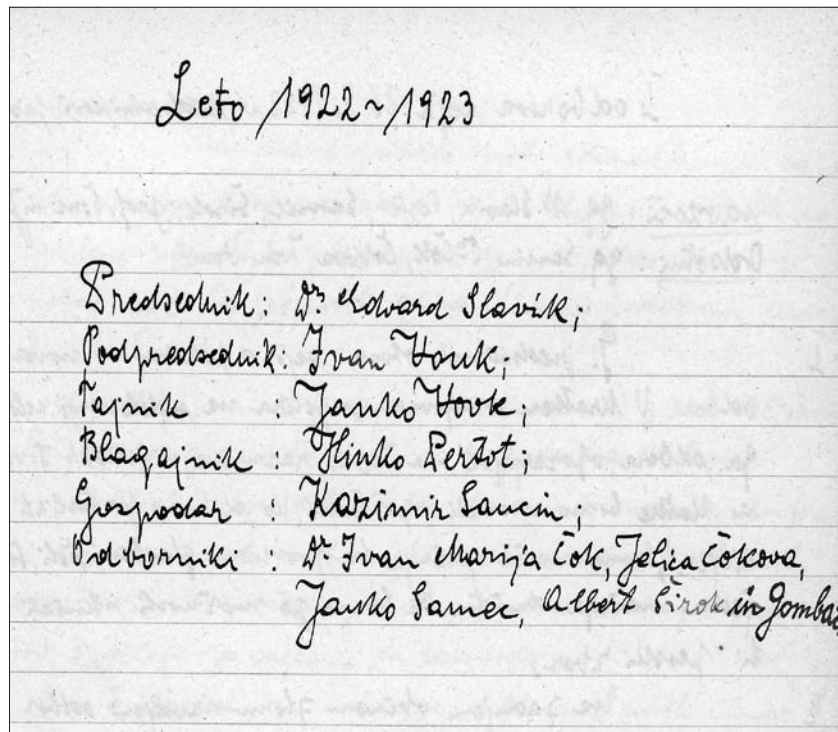 Leto 1922~1923
Predsednik: Dr. Edvard Slavik;
Podpredsednik: Ivan Vouk;
Tajnik : Janko Vovk;
Blagajnik : Hinko Pertot;
Gospodar : Kazimir Sancin;
Odborniki : Dr Ivan Marija Čok, Jelica Čokova,
Janko Samec, Albert Širok in Gombač